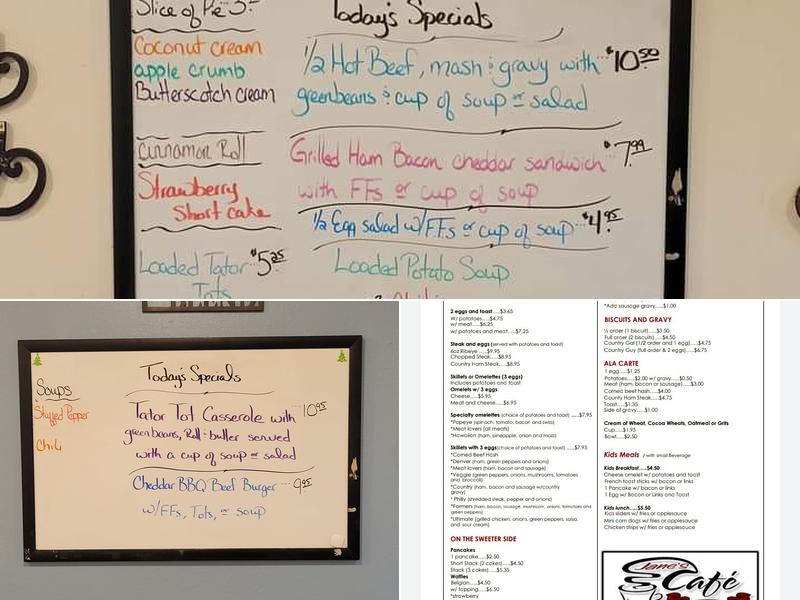 Slice of Pie 3.
Coconut cream
apple crumb
Butterscotch cream
Cinnamon Roll
Strawberry
Short cake
Loaded Tator $5.25
Tots
Today's Specials
1/2 Hot Beef, mash & gravy with $10.50
greenbeans & cup of soup or salad
Grilled Ham Bacon cheddar sandwich $7.99
with FFs or cup of soup
1/2 Egg salad w/FFs or cup of soup $4.95
Loaded Potato Soup
Chili
Soups
Stuffed Pepper
Chili
Today's Specials
Tator Tot Casserole with 10.95
greenbeans, Roll & butter served
with a cup of soup or salad
Cheddar BBQ Beef Burger 9.95
w/FFs, Tots, or soup
2 eggs and toast.....$3.65
W/potatoes.....$4.75
w/meat.....$6.25
w/potatoes and meat.....$7.25
Steak and eggs (served with potatoes and toast)
6oz Ribeye.....$9.95
Chopped Steak.....$8.95
Country Ham Steak.....$8.75
Skillets or Omelettes (3 eggs)
Includes potatoes and toast
Omelets w/ 3 eggs
Cheese.....$5.95
Meat and cheese.....$6.95
Specialty omelettes (choice of potatoes and toast) .....$7.95
*Popeye (spinach, tomato, bacon and swiss)
*Meat lovers (all meats)
*Hawaiian (ham, pineapple, onion and mozz)
Skillets with 3 eggs(choice of potatoes and toast).....$7.95
*Corned Beef Hash
*Denver (ham, green peppers and onions)
*Meat lovers (ham, bacon and sausage)
*Veggie (green peppers, onions, mushrooms, tomatoes
and broccoli)
*Country (ham, bacon and sausage w/country
gravy)
* Philly (shredded steak, pepper and onions)
*Farmers (ham, bacon, sausage, mushroom, onions, tomatoes and
green peppers)
*Ultimate (grilled chicken, onions, green peppers, salsa,
and sour cream)
ON THE SWEETER SIDE
Pancakes
1 pancake.....$2.50
Short Stack (2 cakes).....$4.50
Stack (3 cakes).....$5.35
Waffles
Belgian.....$4.50
w/ topping.....$6.50
*strawberry
*Add sausage gravy.....$1.00
BISCUITS AND GRAVY
½ order (1 biscuit).....$3.50
Full order (2 biscuits).....$4.50
Country Gal (1/2 order and 1 egg).....$4.75
Country Guy (full order & 2 eggs).....$6.75
ALA CARTE
1 egg.....$1.25
Potatoes.....$2.00 w/ gravy.....$0.50
Meat (ham, bacon or sausage).....$3.00
Corned beef hash.....$4.00
County Ham Steak.....$4.75
Toast.....$1.35
Side of gravy.....$1.00
Cream of Wheat, Cocoa Wheats, Oatmeal or Grits
Cup.....$1.95
Bowl.....$2.50
Kids Meals / with small Beverage
Kids Breakfast.....$4.50
Cheese omelet w/ potatoes and toast
French toast sticks w/ bacon or links
1 Pancake w/ bacon or links
1 Egg w/ Bacon or Links and Toast
Kids lunch.....$5.50
Kids sliders w/ fries or applesauce
Mini corn dogs w/ fries or applesauce
Chicken strips w/ fries or applesauce
Jane's
Café